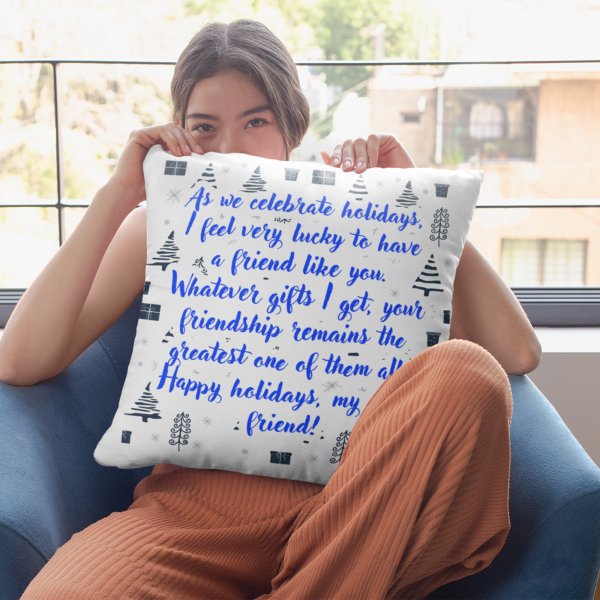 As we celebrate holidays,
I feel very lucky to have
a friend like you.
Whatever gifts I get, your
friendship remains the
greatest one of them all.
Happy holidays, my
friend!